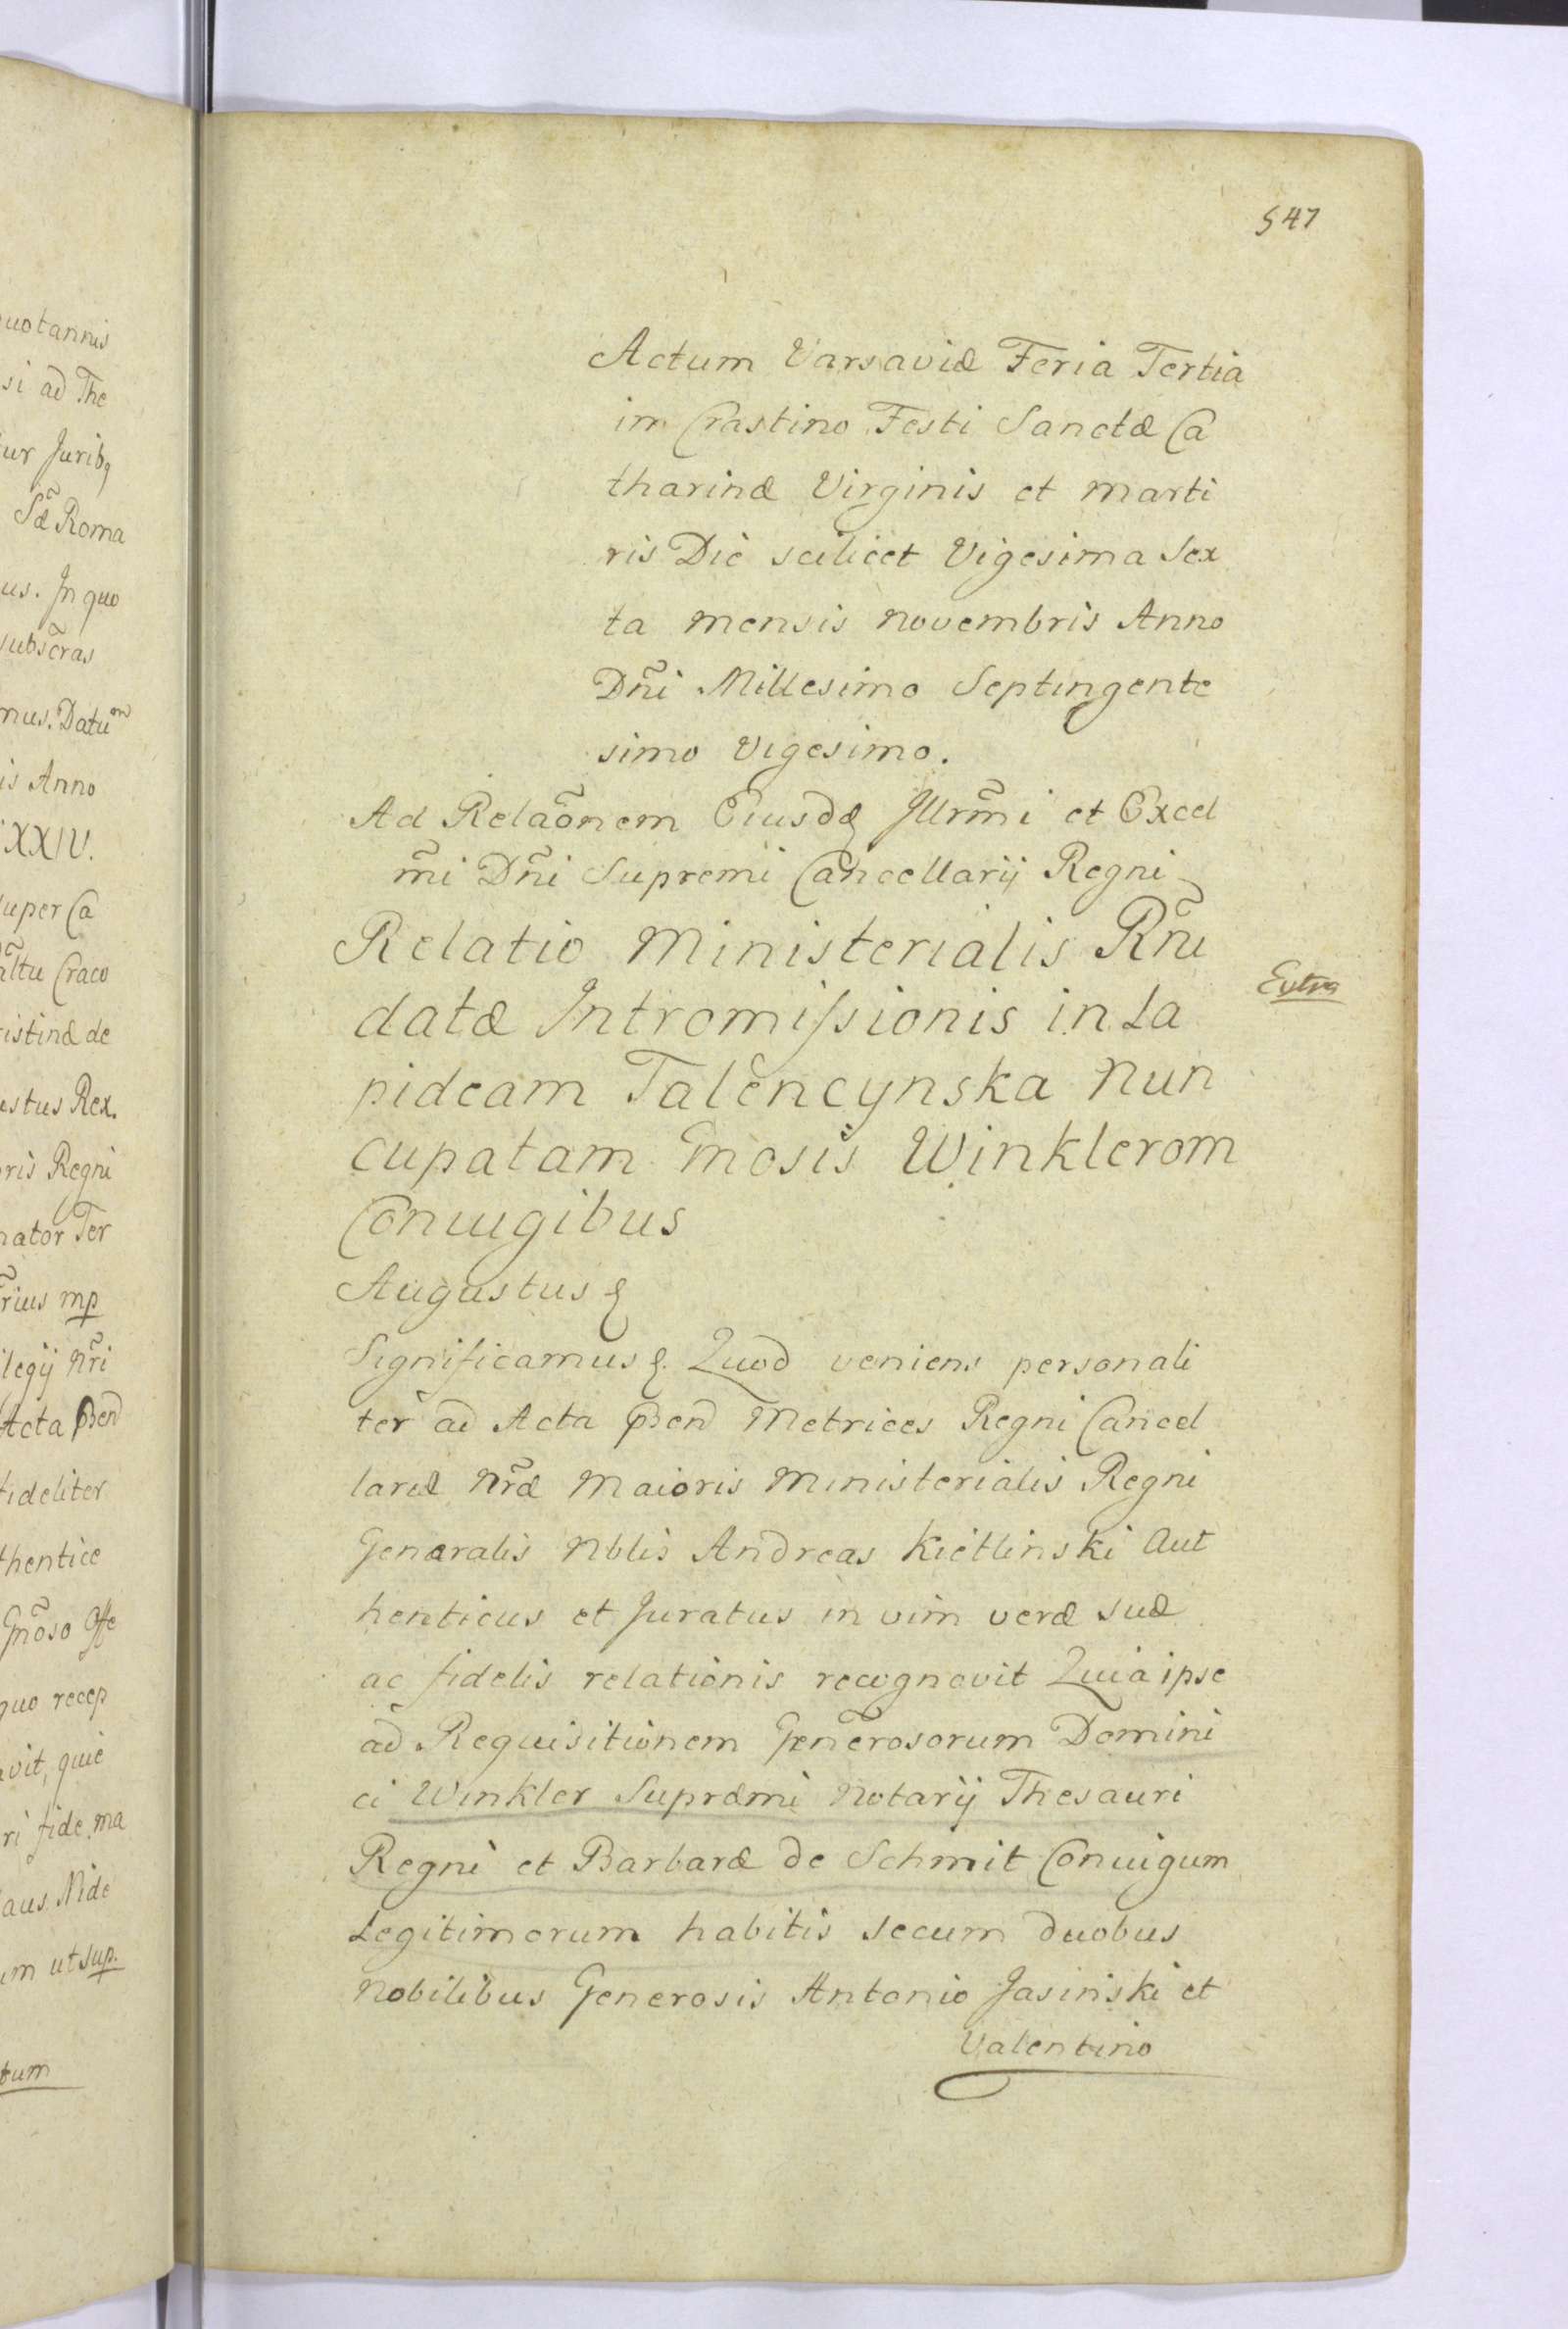 uotannis
si ad The
ur Juribq
Sæ̃ Roma
us. In quo
subscras
mus. Datum
is Anno
XXIV.
uper Ca
altu Craco
ristinæ de
ustus Rex.
oris Regni
nator Ter
rius mp
ilegij nr̃i
Acta pñ
fideliter
thentice
Gnõso Offe
quo recep
vit, quie
ri fide ma
aus Nide
um ut sup.
tum
547
Actum Varsaviæ Feria Tertia
in Crastino Festi Sanctæ Ca
tharinæ Virginis et marti
ris Die scilicet Vigesima Sex
ta mensis novembris Anno
Dñi Millesimo Septingente
simo vigesimo.
Ad Relaõnem Eiusdę Illrm̃i et Excel
m̃i Dñi Supremi Cancellarij Regni
Relatio Ministerialis Rñi
datæ Intromissionis in La
pideam Talencynska Nun
cupatam Gnosis Winklerom
Coniugibus
Extra
Augustus &
Significamus &. Quod veniens personali
ter ad Acta pñ Metrices Regni Cancel
lariæ Nræ̃ Maioris Ministerialis Regni
Generalis Nblis Andreas Kietlinski Aut
henticus et Juratus in vim veræ suæ
ac fidelis relationis recognovit Quia ipse
ad Requisitionem Generosorum Domini
ci Winkler Supræmi Notarij Thesauri
Regni et Barbaræ de Schmit Coniugum
Legitimorum habitis secum duobus
Nobilibus Generosis Antonio Jasinski et
Valentino